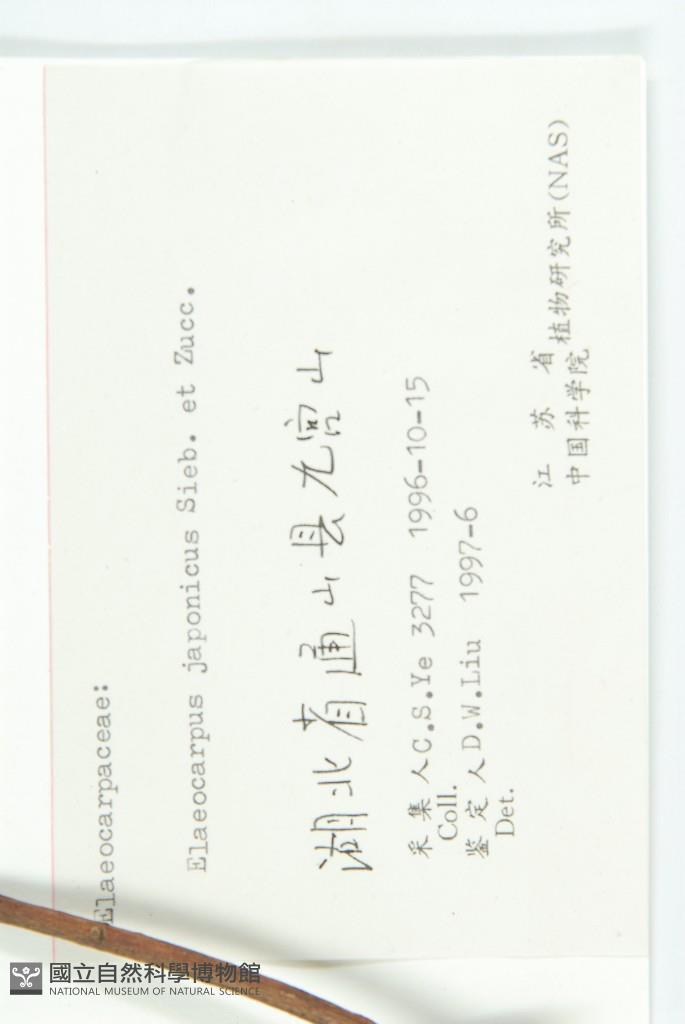 Elaeocarpaceae:
Elaeocarpus japonicus Sieb. et Zucc.
湖北省通山县九宫山
采集人C.S.Ye 3277 1996-10-15
Coll.
鉴定人D.W.Liu 1997-6
Det.
江苏省
中国科学院植物研究所(NAS)
國立自然科學博物館
NATIONAL MUSEUM OF NATURAL SCIENCE